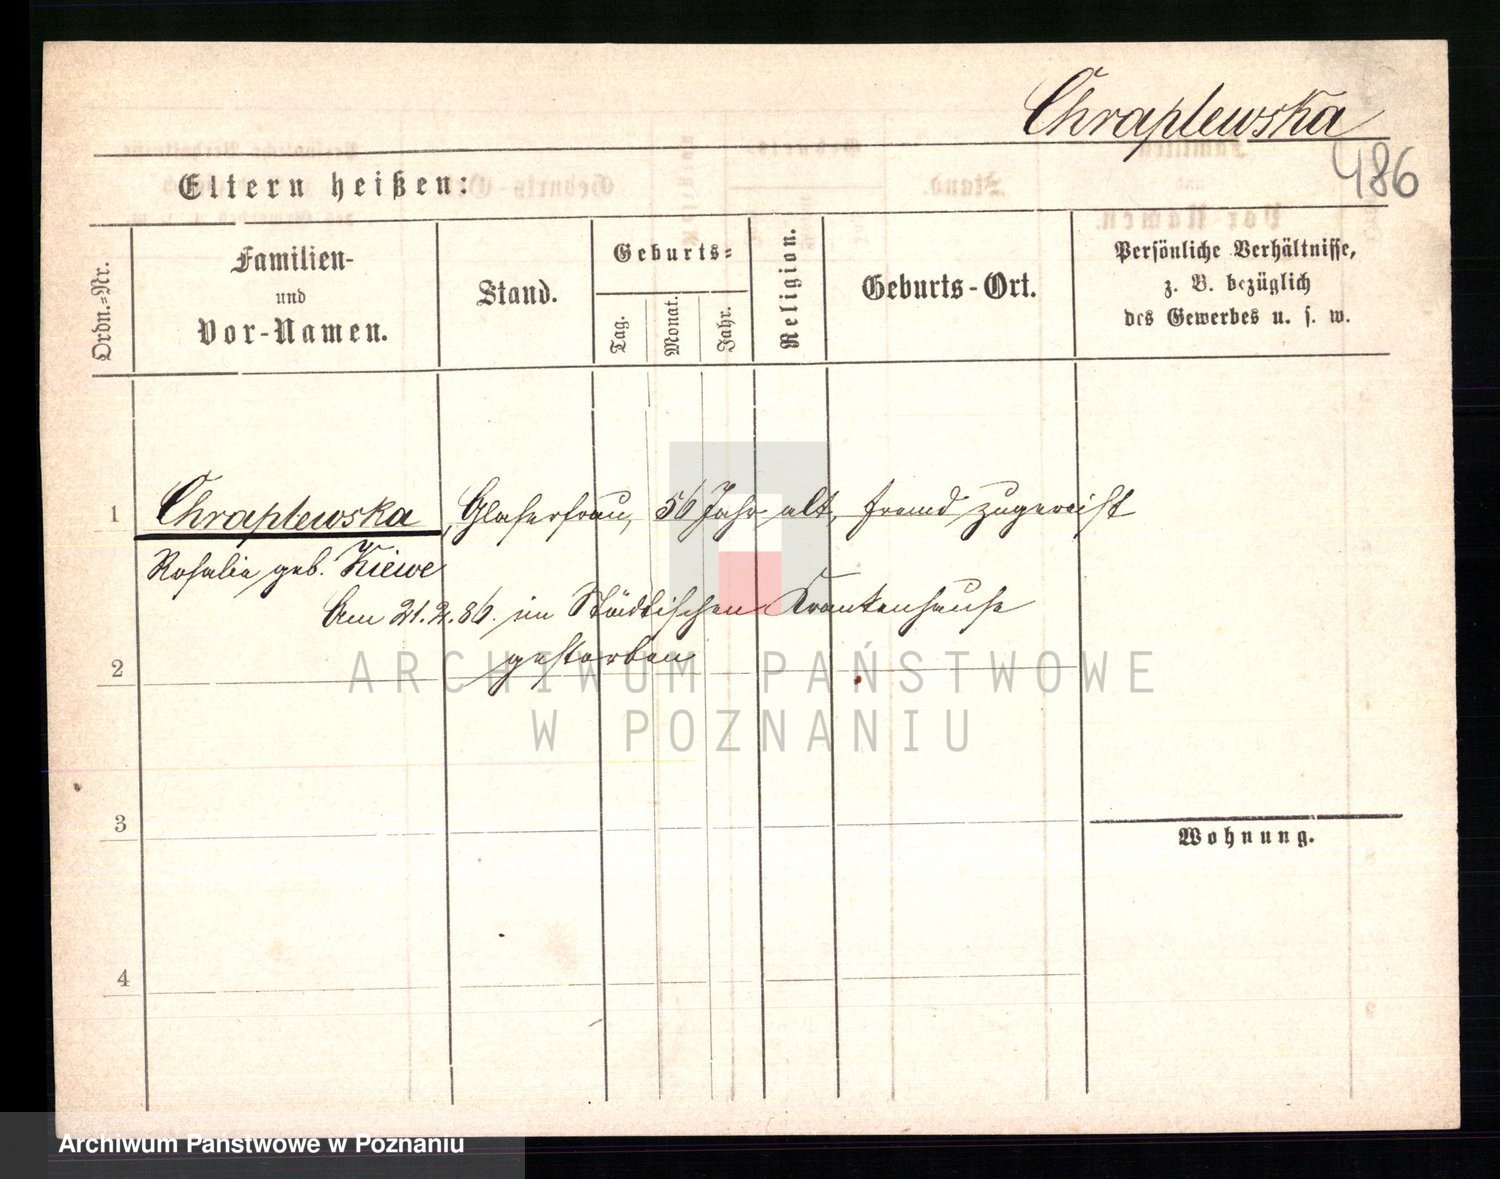 Chraplewska
486
Eltern heißen:
Ordn.-Nr.
Familien-
und
Vor-Namen.
Stand.
Geburts-
Tag.
Monat.
Jahr.
Religion.
Geburts-Ort.
Persönliche Verhältnisse,
z. B. bezüglich
des Gewerbes u. s. w.
1 Chraplewska, Glaserfrau, 56 Jahr alt, fremd zugereist
Rosalie geb. Kiewe
Am 21.2.86. im Städtischen Krankenhause
gestorben
2
ARCHIWUM PAŃSTWOWE
W POZNANIU
3
Wohnung.
4
Archiwum Państwowe w Poznaniu